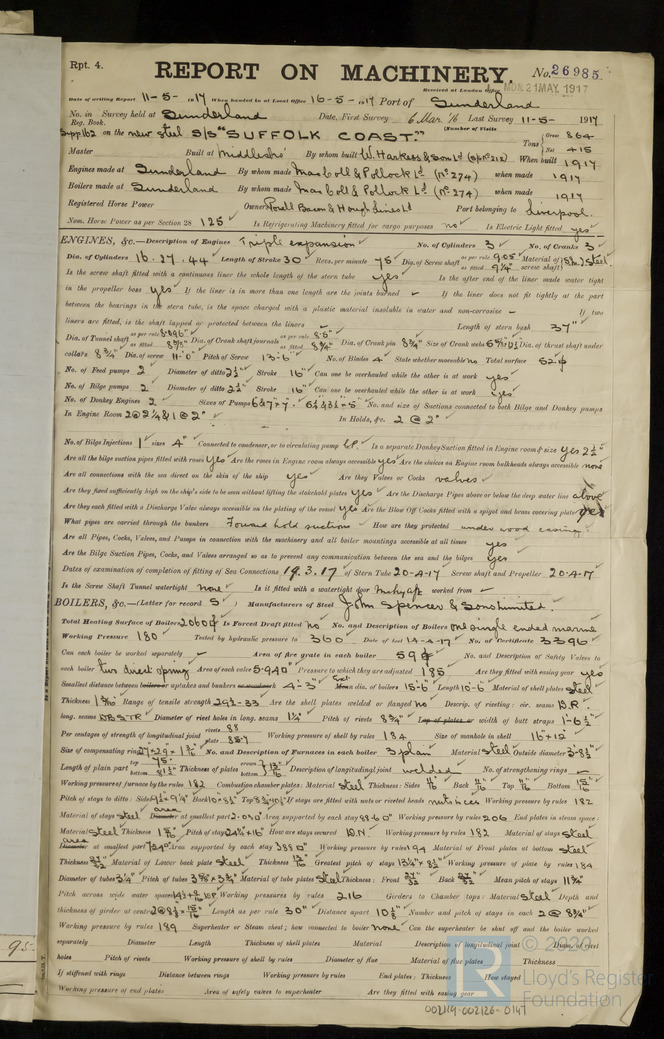 Rpt. 4.
REPORT ON MACHINERY.
No. 26985.
Received at London Office MON. 21 MAY. 1917
Date of writing Report 11-5-1917 When handed in at Local Office 16-5-1917 Port of Sunderland
No. in Survey held at Sunderland Date, First Survey 6 Mar. '16 Last Survey 11-5-1917
Reg. Book. (Number of Visits
Supp 162 on the new steel S/S "SUFFOLK COAST." Tons Gross 864 Net 415
Master Built at Middlesbro' By whom built W. Harkess & Son Ld When built 1917
Engines made at Sunderland By whom made MacColl & Pollock Ld (No 274) when made 1917
Boilers made at Sunderland By whom made MacColl & Pollock Ld (No 274) when made 1917
Registered Horse Power Owner Powell Bacon & Hough Lines Ld Port belonging to Liverpool.
Nom. Horse Power as per Section 28 125 Is Refrigerating Machinery fitted for cargo purposes no Is Electric Light fitted yes
ENGINES, &c.—Description of Engines Triple expansion No. of Cylinders 3 No. of Cranks 3
Dia. of Cylinders 16.27.44 Length of Stroke 30 Revs. per minute 75 Dia. of Screw shaft as per rule 9.05" as fitted 9¼" Material of screw shaft Steel
Is the screw shaft fitted with a continuous liner the whole length of the stern tube yes Is the after end of the liner made water tight
in the propeller boss yes If the liner is in more than one length are the joints burned – If the liner does not fit tightly at the part
between the bearings in the stern tube, is the space charged with a plastic material insoluble in water and non-corrosive – If two
liners are fitted, is the shaft lapped or protected between the liners – Length of stern bush 37"
Dia. of Tunnel shaft as per rule 8.096" as fitted Dia. of Crank shaft journals as per rule 8.5" as fitted 8¾" Dia. of Crank pin 8¾" Size of Crank webs Dia. of thrust shaft under
collars 8¾" Dia. of screw 11'-0" Pitch of Screw 13'-6" No. of Blades 4 State whether moveable no Total surface 52
No. of Feed pumps 2 Diameter of ditto 2½" Stroke 16" Can one be overhauled while the other is at work yes
No. of Bilge pumps 2 Diameter of ditto 2½" Stroke 16" Can one be overhauled while the other is at work yes
No. of Donkey Engines 2 Sizes of Pumps No. and size of Suctions connected to both Bilge and Donkey pumps
In Engine Room 2@2¼ & 1@2" In Holds, &c. 2@2"
No. of Bilge Injections 1 sizes 4" Connected to condenser, or to circulating pump C.P. Is a separate Donkey Suction fitted in Engine room & size yes 2½"
Are all the bilge suction pipes fitted with roses yes Are the roses in Engine room always accessible yes Are the sluices on Engine room bulkheads always accessible none
Are all connections with the sea direct on the skin of the ship yes Are they Valves or Cocks valves
Are they fixed sufficiently high on the ship's side to be seen without lifting the stokehold plates yes Are the Discharge Pipes above or below the deep water line above
Are they each fitted with a Discharge Valve always accessible on the plating of the vessel yes Are the Blow Off Cocks fitted with a spigot and brass covering plate yes
What pipes are carried through the bunkers Forward hold suctions How are they protected under wood casing
Are all Pipes, Cocks, Valves, and Pumps in connection with the machinery and all boiler mountings accessible at all times yes
Are the Bilge Suction Pipes, Cocks, and Valves arranged so as to prevent any communication between the sea and the bilges yes
Dates of examination of completion of fitting of Sea Connections 19.3.17 of Stern Tube 20-4-17 Screw shaft and Propeller 20-4-17
Is the Screw Shaft Tunnel watertight none Is it fitted with a watertight door Mchy aft worked from –
BOILERS, &c.—(Letter for record S) Manufacturers of Steel John Spencer & Sons Limited.
Total Heating Surface of Boilers 2060 Is Forced Draft fitted no No. and Description of Boilers one single ended marine
Working Pressure 180 Tested by hydraulic pressure to 360 Date of test 14-4-17 No. of Certificate 3396
Can each boiler be worked separately – Area of fire grate in each boiler 59 No. and Description of Safety Valves to
each boiler two direct spring Area of each valve 5.940" Pressure to which they are adjusted 185 Are they fitted with easing gear yes
Smallest distance between boilers or uptakes and bunkers or woodwork 4'-3" Mean dia. of boilers 15'-6" Length 10'-6" Material of shell plates steel
Thickness Range of tensile strength 29½-33 Are the shell plates welded or flanged no Descrip. of riveting: cir. seams D.R.
long. seams D.B.S.T.R. Diameter of rivet holes in long. seams 1¼" Pitch of rivets 8¾" Lap of plates or width of butt straps 1'-6½"
Per centages of strength of longitudinal joint rivets 88 plate 85.7 Working pressure of shell by rules 184 Size of manhole in shell 16"×12"
Size of compensating ring No. and Description of Furnaces in each boiler 3 plain Material steel Outside diameter 3'-8½"
Length of plain part top 75" bottom 81½" Thickness of plates crown bottom Description of longitudinal joint welded No. of strengthening rings –
Working pressure of furnace by the rules 182 Combustion chamber plates: Material steel Thickness: Sides Back Top Bottom
Pitch of stays to ditto: Sides Back Top If stays are fitted with nuts or riveted heads nuts Working pressure by rules 182
Material of stays steel Diameter area at smallest part 2.030" Area supported by each stay Working pressure by rules 206 End plates in steam space:
Material steel Thickness Pitch of stays How are stays secured D.N. Working pressure by rules 182 Material of stays steel
area Diameter at smallest part Area supported by each stay 388 Working pressure by rules 194 Material of Front plates at bottom steel
Thickness Material of Lower back plate steel Thickness Greatest pitch of stays Working pressure of plate by rules 184
Diameter of tubes 3¼" Pitch of tubes Material of tube plates steel Thickness: Front Back Mean pitch of stays 11¾"
Pitch across wide water spaces Working pressures by rules 216 Girders to Chamber tops: Material steel Depth and
thickness of girder at centre Length as per rule 30" Distance apart 10½" Number and pitch of stays in each 2@8¾"
Working pressure by rules 189 Superheater or Steam chest; how connected to boiler none Can the superheater be shut off and the boiler worked
separately Diameter Length Thickness of shell plates Material Description of longitudinal joint Diam. of rivet
holes Pitch of rivets Working pressure of shell by rules Diameter of flue Material of flue plates Thickness
If stiffened with rings Distance between rings Working pressure by rules End plates: Thickness How stayed
Working pressure of end plates Area of safety valves to superheater Are they fitted with easing gear
95
© 2020
Lloyd's Register
Foundation
LR
002119-002126-0147